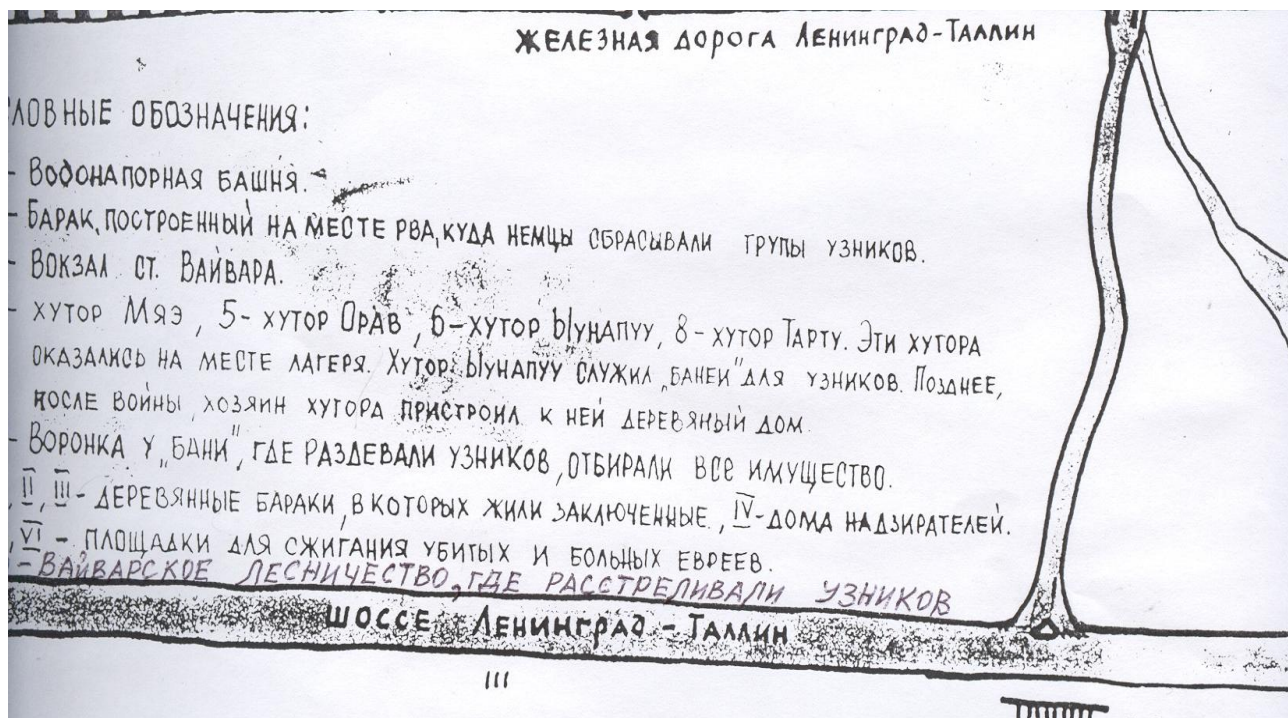 ЖЕЛЕЗНАЯ ДОРОГА ЛЕНИНГРАД-ТАЛЛИН
СЛОВНЫЕ ОБОЗНАЧЕНИЯ:
- ВОДОНАПОРНАЯ БАШНЯ.
- БАРАК, ПОСТРОЕННЫЙ НА МЕСТЕ РВА, КУДА НЕМЦЫ СБРАСЫВАЛИ ТРУПЫ УЗНИКОВ.
- ВОКЗАЛ СТ. ВАЙВАРА.
- ХУТОР МЯЭ, 5- ХУТОР ОРАВ, 6-ХУТОР ЫУНАПУУ, 8- ХУТОР ТАРТУ. ЭТИ ХУТОРА
ОКАЗАЛИСЬ НА МЕСТЕ ЛАГЕРЯ. ХУТОР ЫУНАПУУ СЛУЖИЛ „БАНЕЙ" ДЛЯ УЗНИКОВ. ПОЗДНЕЕ,
ПОСЛЕ ВОЙНЫ ХОЗЯИН ХУТОРА ПРИСТРОИЛ К НЕЙ ДЕРЕВЯНЫЙ ДОМ.
- ВОРОНКА У „БАНИ", ГДЕ РАЗДЕВАЛИ УЗНИКОВ, ОТБИРАЛИ ВСЕ ИМУЩЕСТВО.
, II, III - ДЕРЕВЯННЫЕ БАРАКИ, В КОТОРЫХ ЖИЛИ ЗАКЛЮЧЕННЫЕ, IV-ДОМА НАДЗИРАТЕЛЕЙ.
, VI - ПЛОЩАДКИ ДЛЯ СЖИГАНИЯ УБИТЫХ И БОЛЬНЫХ ЕВРЕЕВ.
- ВАЙВАРСКОЕ ЛЕСНИЧЕСТВО, ГДЕ РАССТРЕЛИВАЛИ УЗНИКОВ
ШОССЕ ЛЕНИНГРАД - ТАЛЛИН